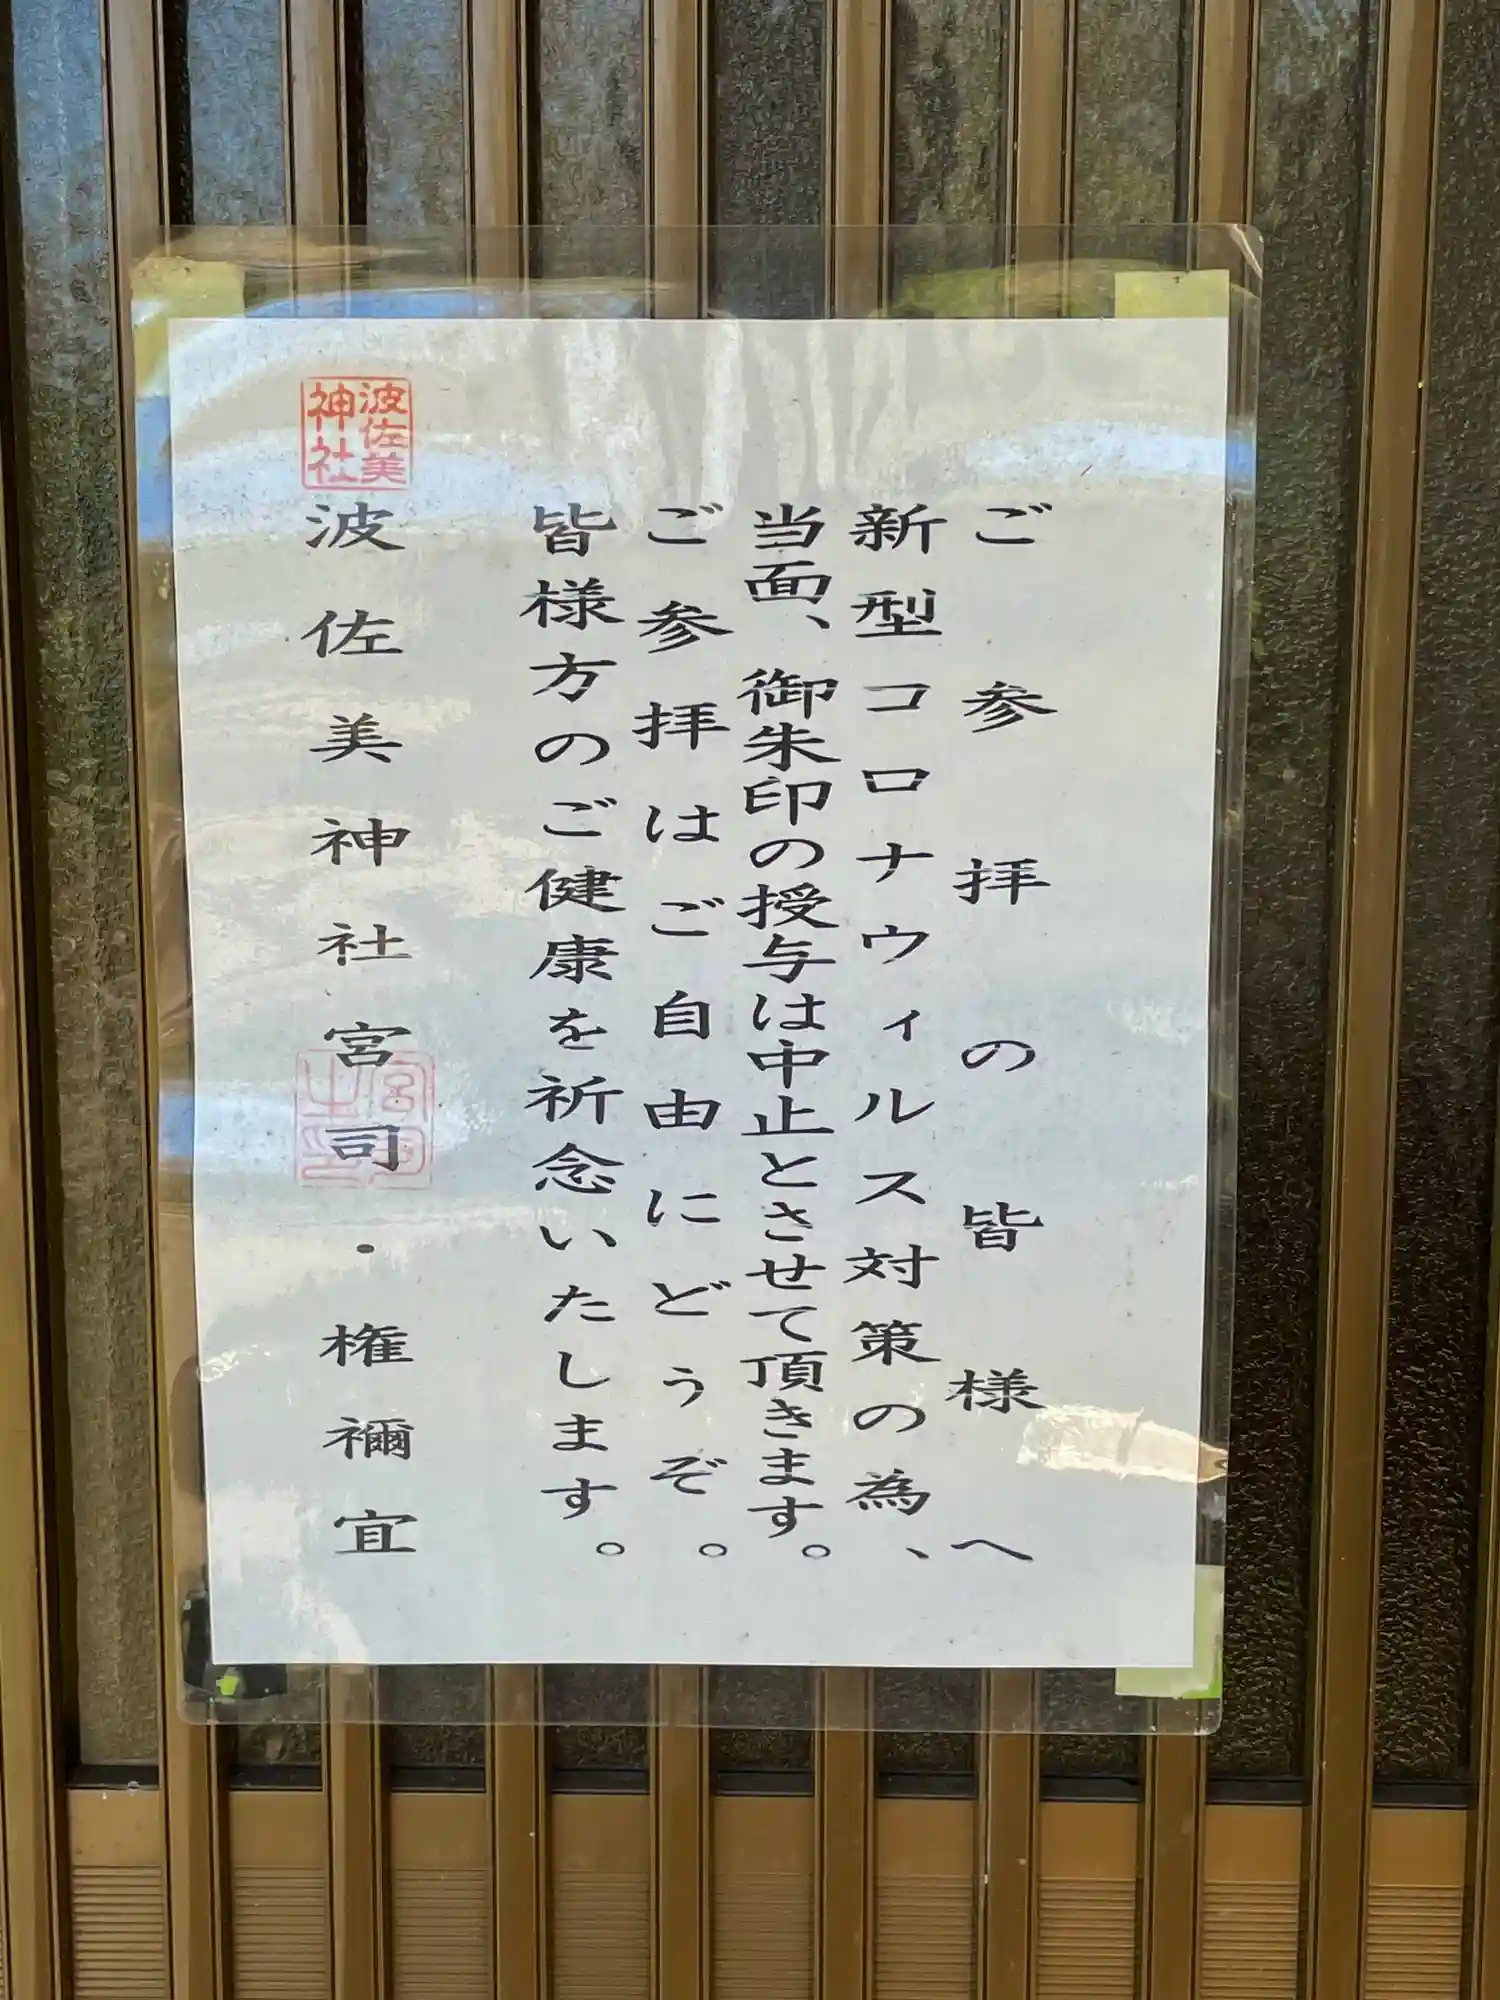 ご参拝の皆様へ
新型コロナウィルス対策の為、
当面、御朱印の授与は中止とさせて頂きます。
ご参拝はご自由にどうぞ。
皆様方のご健康を祈念いたします。
波佐美
神社
波佐美神社宮司・権禰宜